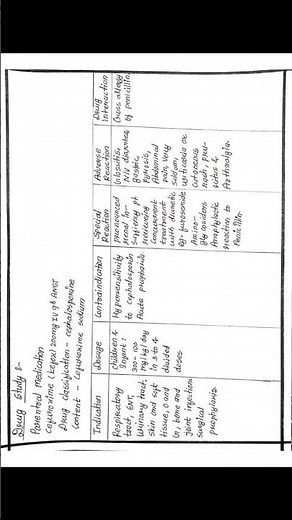 Drug Study :-
Parenteral medication
Cefuroxime (
) 200mg IV q8
ANST
Drug classification - cephalosporine
Content - Cefuroxime sodium
Indication
Dosage
Contraindication
Special
Reaction
Adverse
Reaction
Drug
Interaction
Respiratory
tract, ENT,
Urinary tract,
skin and soft
tissue, O and
G, bone and
joint injection
surgical
prophylaxis.
Children &
Infant :
300 - 100
mg/kg/day
in 3 to 4
divided
doses.
Hypersensitivity
to cephalosporin
Acute
pronounced
renal in-
sufficiency pt
receiving
concurrent
treatment
with diuretic
eg- furosemide
Amino-
glycosidens
Anaphylactic
reaction to
Penicillin.
N/V diarrhea,
gastric,
Pyrosis,
Abdominal
pain, very
seldom,
urticaria or
cutaneous
rash,
&
Arthralgia.
Cross allergy
of penicillin.